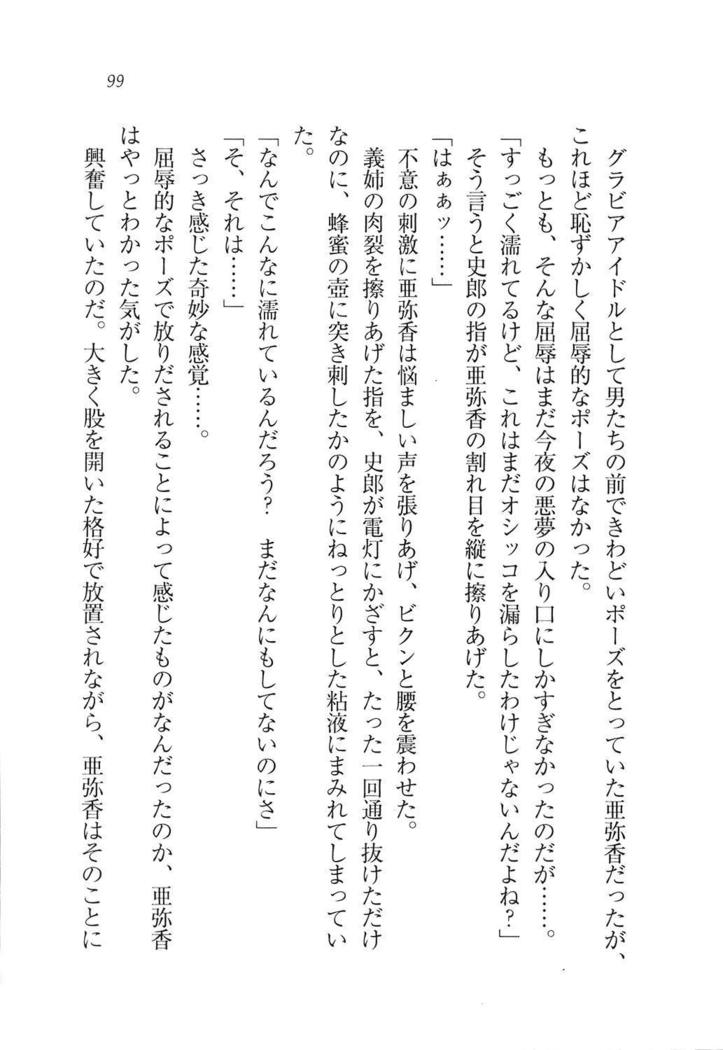 99
グラビアアイドルとして男たちの前できわどいポーズをとっていた亜弥香だったが、
これほど恥ずかしく屈辱的なポーズはなかった。
もっとも、そんな屈辱はまだ今夜の悪夢の入り口にしかすぎなかったのだが……。
「すっごく濡れてるけど、これはまだオシッコを漏らしたわけじゃないんだよね？」
そう言うと史郎の指が亜弥香の割れ目を縦に擦りあげた。
「はぁぁッ……」
不意の刺激に亜弥香は悩ましい声を張りあげ、ビクンと腰を震わせた。
義姉の肉裂を擦りあげた指を、史郎が電灯にかざすと、たった一回通り抜けただけ
なのに、蜂蜜の壺に突き刺したかのようにねっとりとした粘液にまみれてしまってい
た。
「なんでこんなに濡れているんだろう？　まだなんにもしてないのにさ」
「そ、それは……」
さっき感じた奇妙な感覚……。
屈辱的なポーズで放りだされることによって感じたものがなんだったのか、亜弥香
はやっとわかった気がした。
興奮していたのだ。大きく股を開いた格好で放置されながら、亜弥香はそのことに